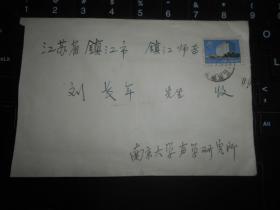 江苏省镇江市 镇江师专
刘长年 先生 收
南京大学声学研究所